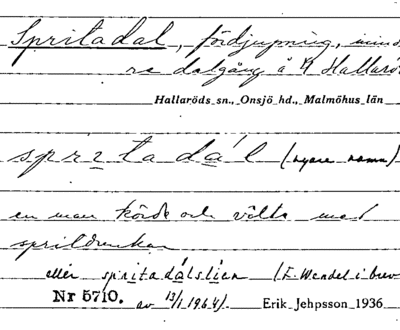 Spritadal, fördjupning, mind
re dalgång å Hallarö
Hallaröds sn., Onsjö hd., Malmöhus län
spritadál (nyare namn)
en man körde och välte med
spritdunkar
eller spritadálsliden (E. Wendel i brev
Nr 5710. av 13/1 1964). Erik Jehpsson 1936